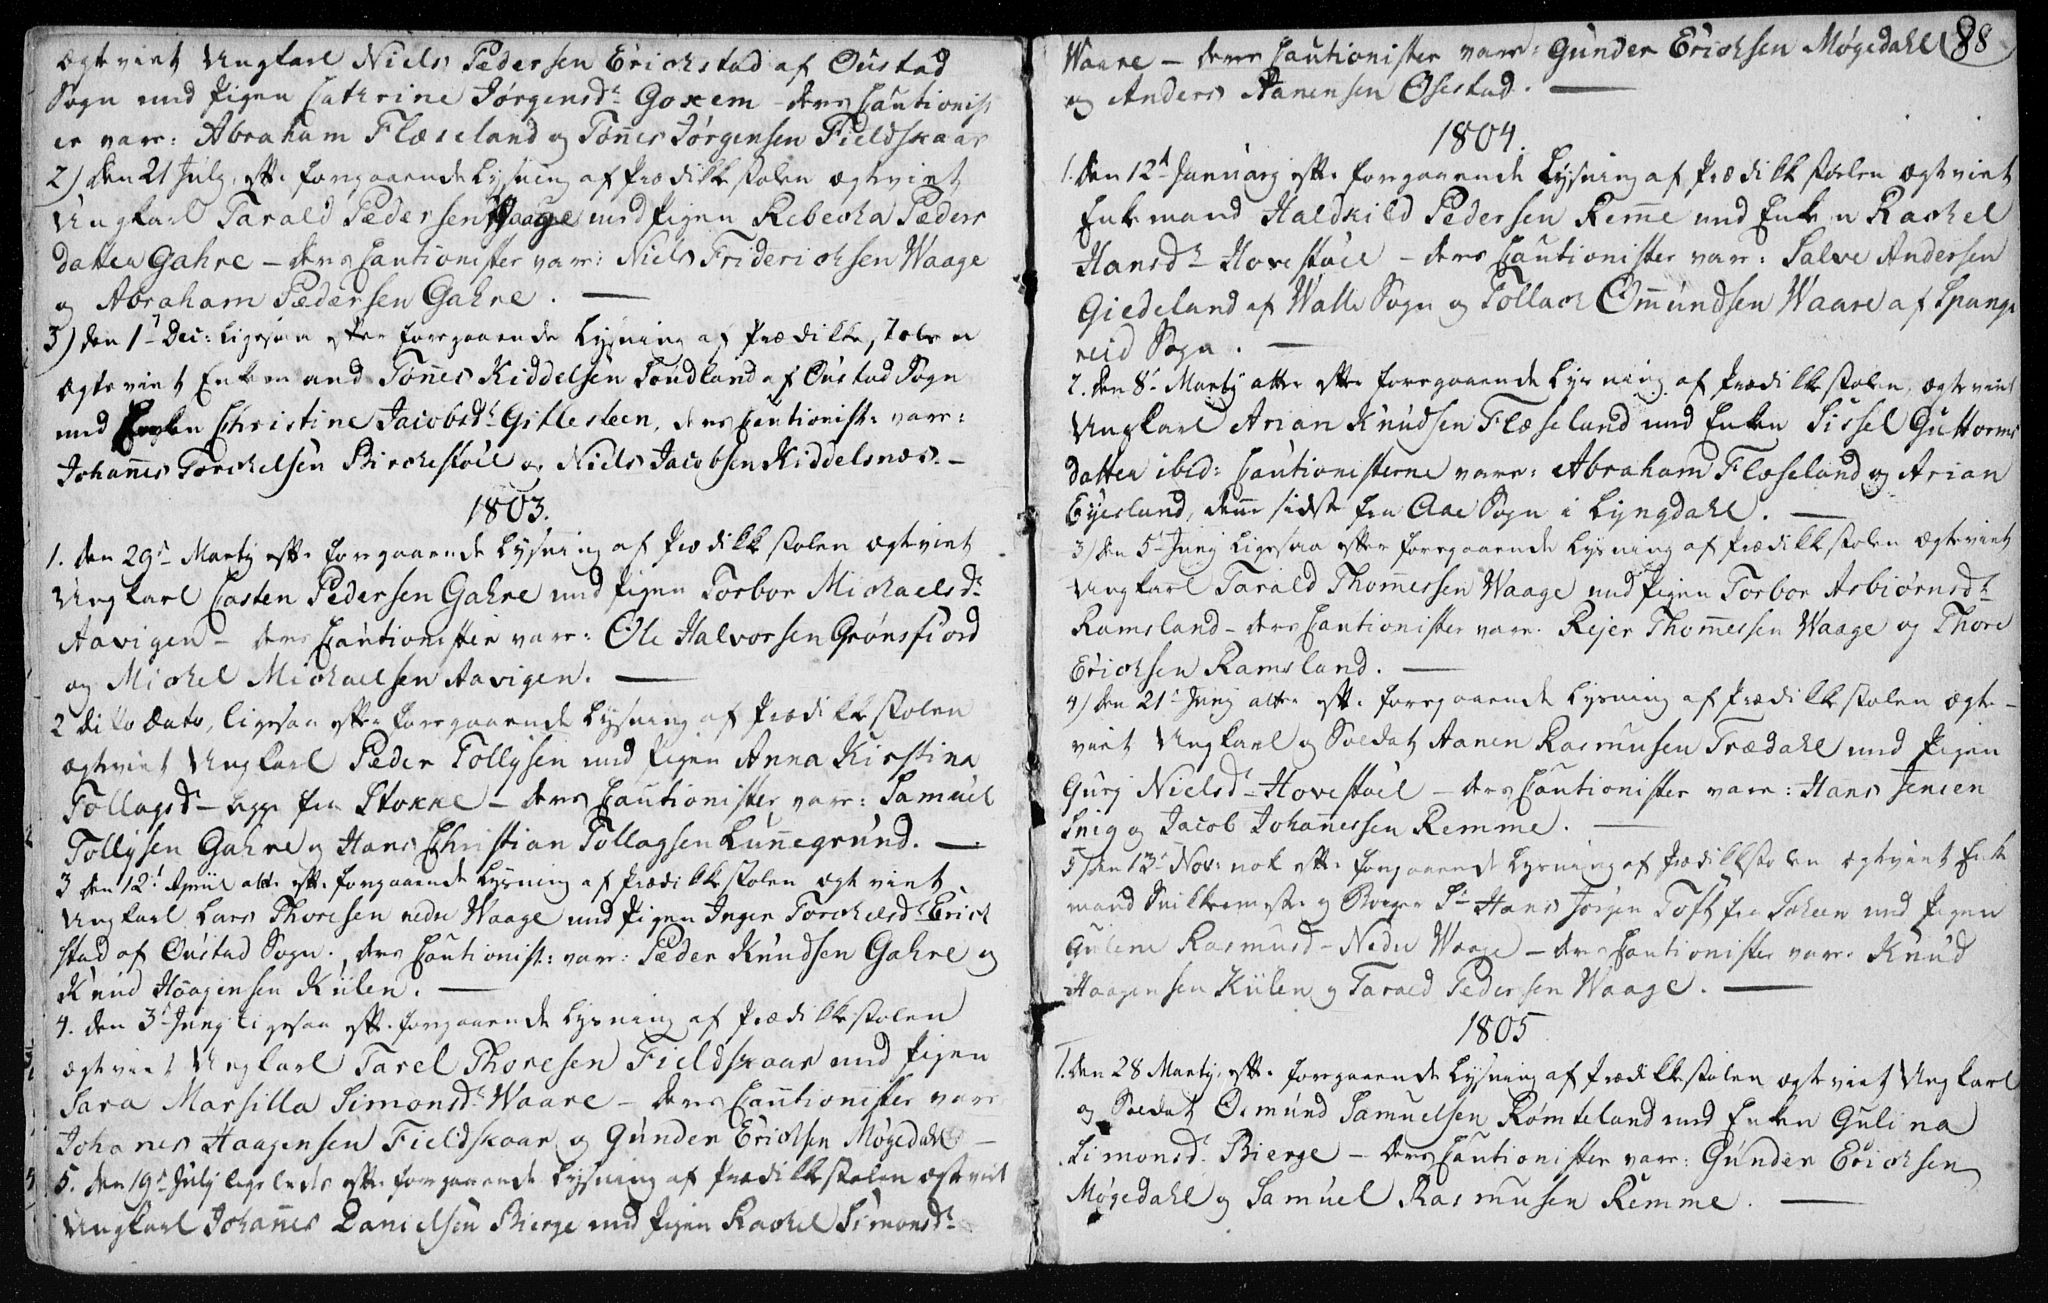 ægteviet Ungkarl Niels Pedersen Erichstad af Oustad
Sogn med Pigen Cathrine Jørgensdr Goxem – deres Cautionist
er vare: Abraham Flæseland og Tønnes Jørgensen Fieldskaar
2) den 21 July, eftr foregaaende Lysning af Prædikkestolen ægteviet
Ungkarl Tarald Pedersen Waage med Pigen Rebecha Peders
datter Gahre – deres Cautionister vare: Niels Friderichsen Waage
og Abraham Pedersen Gahre. —
3) den 1t Dec: ligesaa efter foregaaende Lysning af Prædikkestolen
ægteviet Enkemand Tønnes Kiddelsen Sendland af Oustad Sogn
med Christine Jacobsdr Gittlesteen, deres Cautionistr vare:
Johannes Torchelsen Birchestøel og Niels Jacobsen Kiddelsnæs. –
1803.
1. den 29d Martij eftr foregaaende Lysning af Prædikkestolen ægteviet
Ungkarl Casten Pedersen Gahre med Pigen Torbor Michaelsdr
Aavigen – deres Cautionister vare: Ole Halvorsen Grønsfiord
og Michel Michaelsen Aavigen. —
2 dito Dato, ligesaa efter foregaaende Lysning af Prædikkestolen
ægteviet Ungkarl Peder Tollysen med Pigen Anna Kirstina
Tollagsdr – begge fra Stokke – deres Cautionister vare: Samuel
Tollysen Gahre og Hans Christian Tollagsen Lunnegrund. —
3 den 12t April atter eftr foregaaende Lysning af Prædikkestolen ægteviet
Ungkarl Lars Thoresen nedre Waage med Pigen Inger Torchelsdr Erich
stad af Oustad Sogn., deres Cautionist: var: Peder Knudsen Gahre og
Knud Haagensen Kiilen. —
4. den 3d Junij ligesaa eftr foregaaende Lysning af Prædikkestolen
ægteviet Ungkarl Tarel Thoresen Fieldskaar med Pigen
Sara Marsilla Simonsdr Waare – deres Cautionister vare
Johanes Haagensen Fieldskaar og Gunder Erichsen Møgedahl –
5. den 19d July ligeledes eftr foregaaende Lysning af Prædikkestolen ægteviet
Ungkarl Johannes Danielsen Bierge med Pigen Rachel Simonsdr
88
Waare – deres Cautionister vare: Gunder Erichsen Møgedahl
og Anders Aanensen Osestad. —
1804.
1. den 12t Januarij eftr foregaaende Lysning af Prædikkestolen ægteviet
Enkemand Haldkild Pedersen Remme med Enken Rachel
Hansdr Hovestøel – deres Cautionister var: Salve Andersen
Giedeland af Walle Sogn og Tollach Ommundsen Waare af Spange
reid Sogn. —
2. den 8d Martij atter efter foregaaende Lysning af Prædikkestolen ægteviet
Ungkarl Arian Knudsen Flæseland med Enken Sissel Guttorms
datter ibid: Cautionisterne vare: Abraham Flæseland og Arian
Eyersland, denne sidste fra Aae Sogn i Lyngdahl. —
3) den 5 Junij ligesaa efter foregaaende Lysning af Prædikkestolen ægteviet
Ungkarl Tarald Thomessen Waage med Pigen Torbor Asbiørnsdr
Ramsland – deres Cautionister vare. Rejer Thomessen Waage og Thore
Erichsen Ramsland. —
4) den 21d Junij atter eftr foregaaende Lysning af Prædikkestolen ægte–
viet Ungkarl og Soldat Aanen Rasmusen Trædahl med Pigen
Gurj Nielsdr Hovestøel – deres Cautionister vare: Hans Jensen
Snig og Jacob Johannessen Remme. —
5) den 13d Nov: nok eftr foregaaende Lysning af Prædikkestolen ægteviet Enke
mand Sr Hans Jørgen Toft fra med Pigen
Gulene Rasmusd– Nedre Waage – deres Cautionister vare. Knud
Haagensen Kiilen og Tarald Pedersen Waage. —
1805
1. den 28 Martij, eftr foregaaende Lysning af Prædikkestolen ægteviet Ungkarl
og Soldat Osmund Samuelsen Rømteland med Enken Gulina
Simonsdr Bierge – deres Cautionister vare: Gunder Erichsen
Møgedahl og Samuel Rasmusen Remme. —